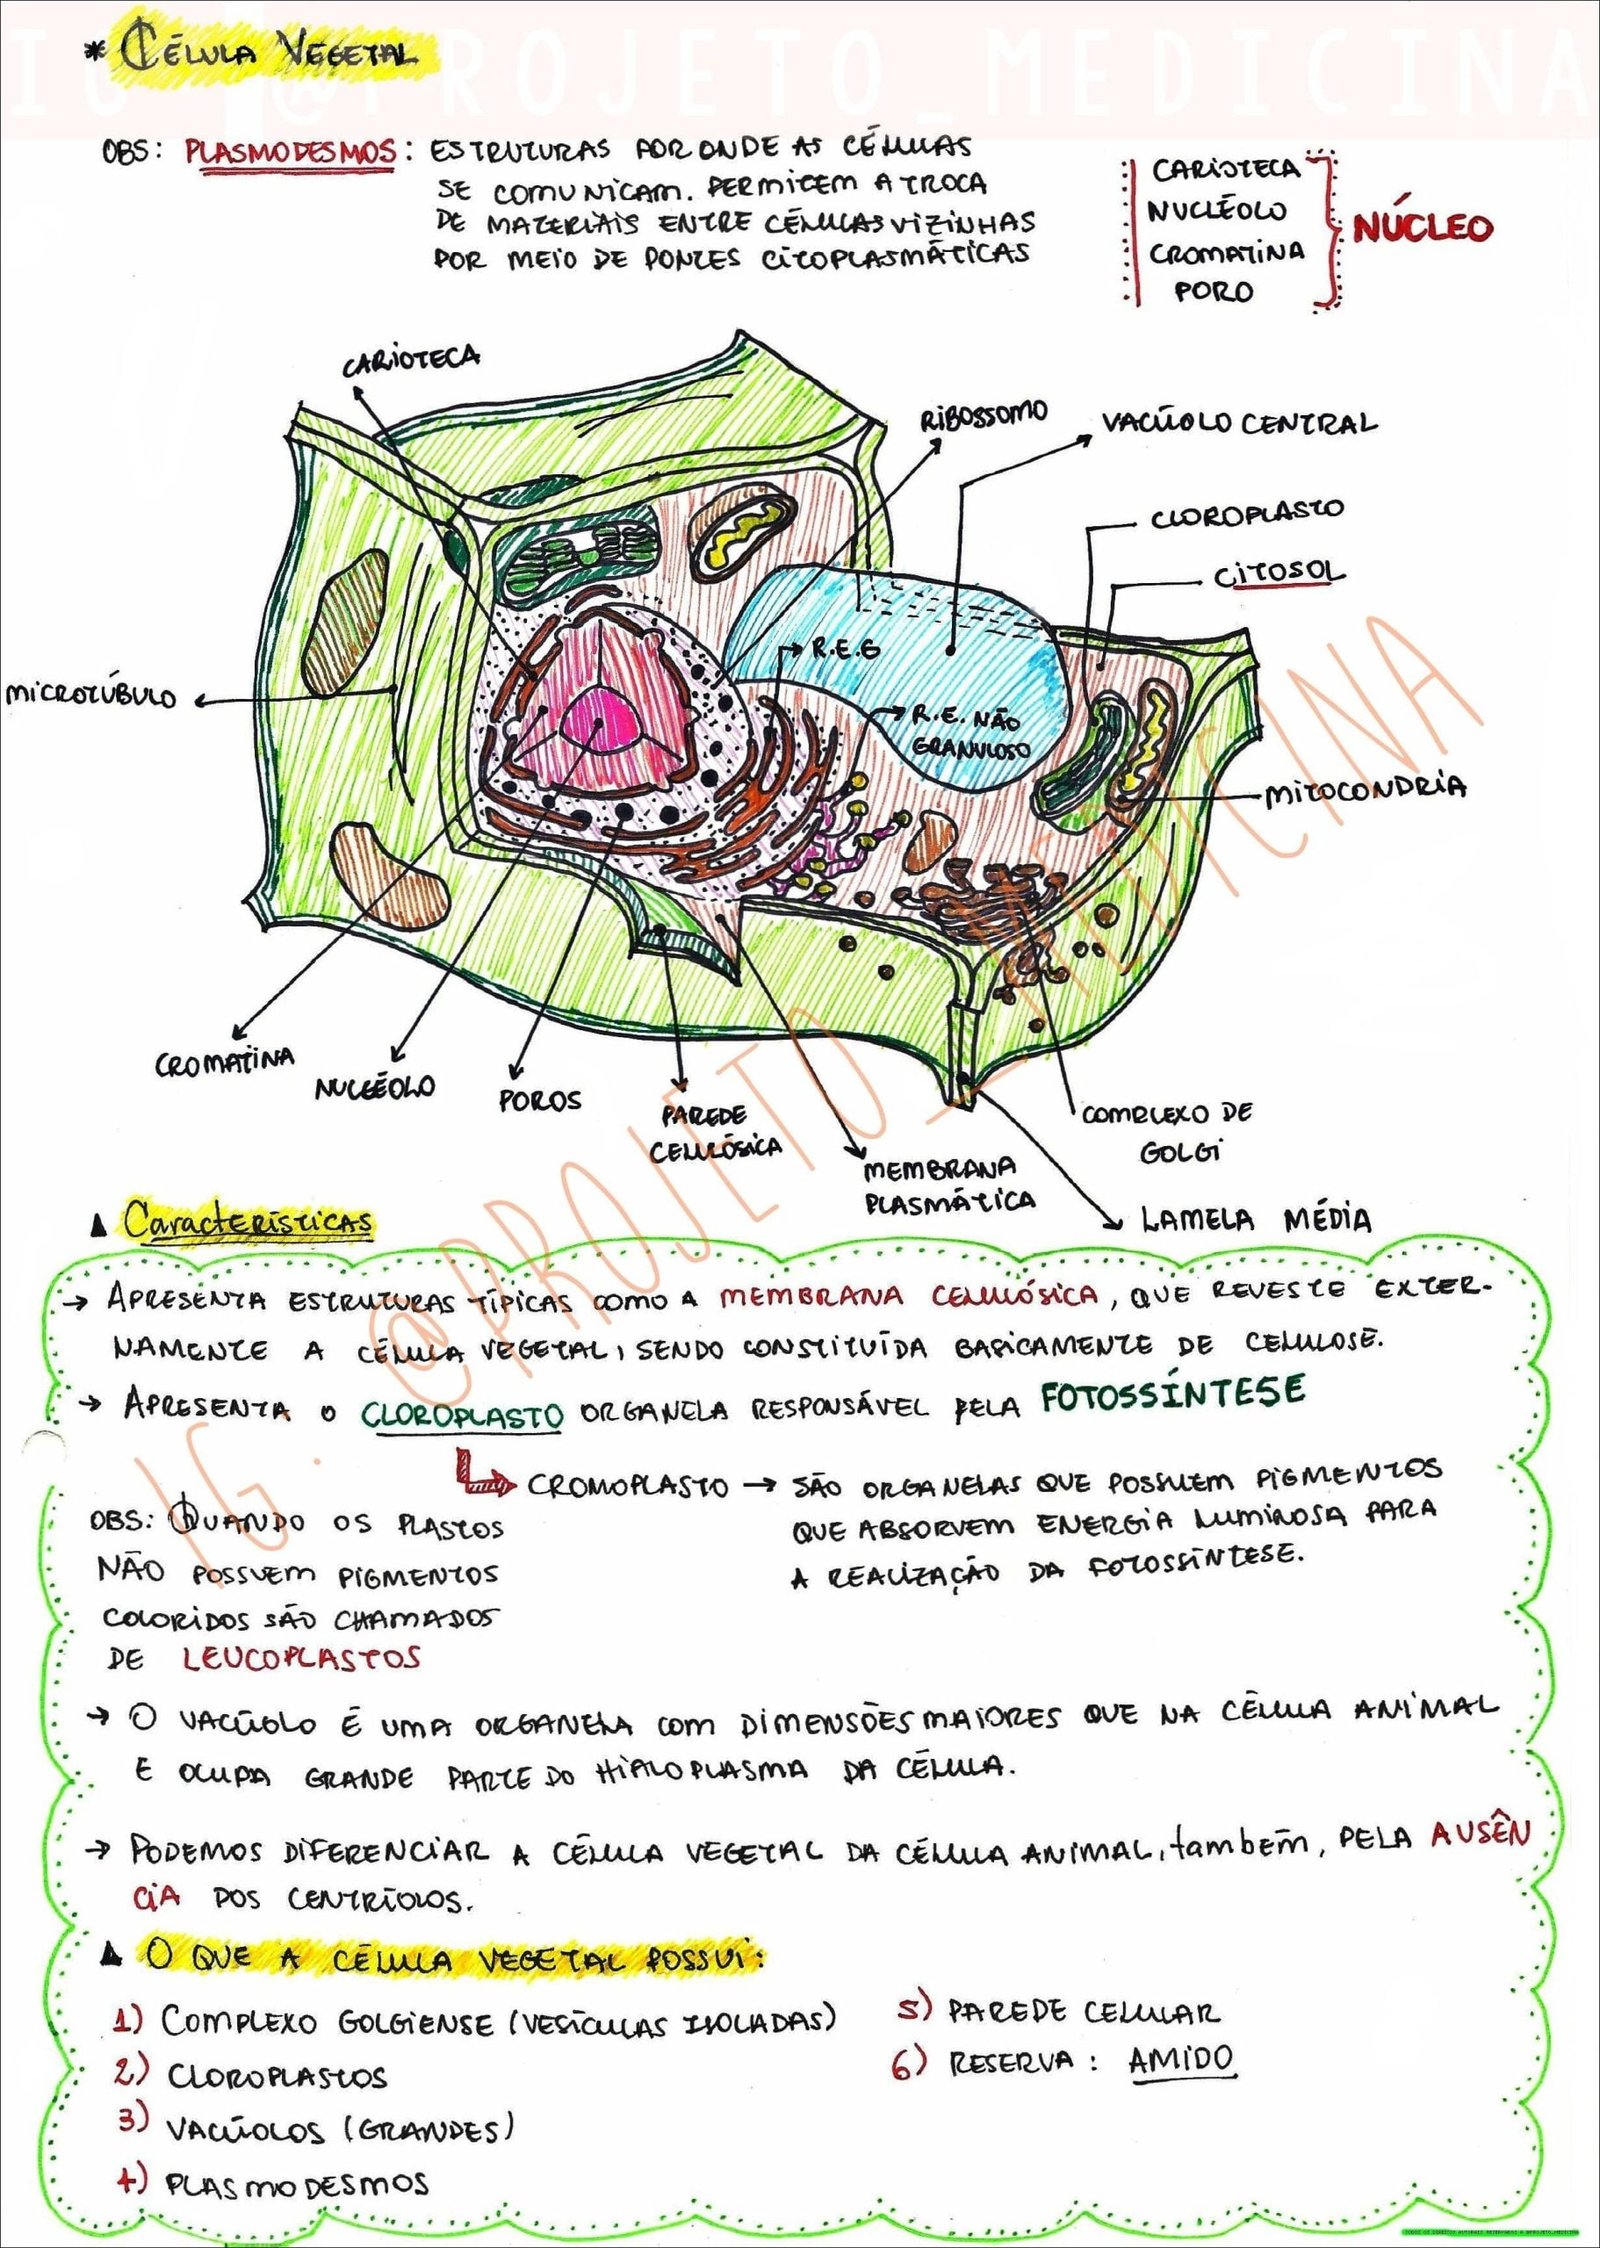 IG: @PROJETO_MEDICINA
* CÉLULA VEGETAL
OBS: PLASMODESMOS: ESTRUTURAS POR ONDE AS CÉLULAS
SE COMUNICAM. PERMITEM A TROCA
DE MATERIAIS ENTRE CÉLULAS VIZINHAS
POR MEIO DE PONTES CITOPLASMÁTICAS
CARIOTECA
NUCLÉOLO
CROMATINA
PORO
NÚCLEO
CARIOTECA
RIBOSSOMO
VACÚOLO CENTRAL
CLOROPLASTO
CITOSOL
R.E.G
MICROTÚBULO
R.E. NÃO
GRANULOSO
MITOCONDRIA
CROMATINA
NUCLÉOLO
POROS
PAREDE
CELULÓSICA
MEMBRANA
PLASMÁTICA
COMPLEXO DE
GOLGI
LAMELA MÉDIA
IG: @PROJETO_MEDICINA
▲ CARACTERÍSTICAS
→ APRESENTA ESTRUTURAS TÍPICAS COMO A MEMBRANA CELULÓSICA, QUE REVESTE EXTER-
NAMENTE A CÉLULA VEGETAL, SENDO CONSTITUÍDA BASICAMENTE DE CELULOSE.
→ APRESENTA O CLOROPLASTO ORGANELA RESPONSÁVEL PELA FOTOSSÍNTESE
CROMOPLASTO → SÃO ORGANELAS QUE POSSUEM PIGMENTOS
QUE ABSORVEM ENERGIA LUMINOSA PARA
A REALIZAÇÃO DA FOTOSSÍNTESE.
OBS: QUANDO OS PLASTOS
NÃO POSSUEM PIGMENTOS
COLORIDOS SÃO CHAMADOS
DE LEUCOPLASTOS
→ O VACÚOLO É UMA ORGANELA COM DIMENSÕES MAIORES QUE NA CÉLULA ANIMAL
E OCUPA GRANDE PARTE DO HIALOPLASMA DA CÉLULA.
→ PODEMOS DIFERENCIAR A CÉLULA VEGETAL DA CÉLULA ANIMAL, também, PELA AUSÊN
CIA DOS CENTRÍOLOS.
▲ O QUE A CÉLULA VEGETAL POSSUI:
1) COMPLEXO GOLGIENSE (VESÍCULAS ISOLADAS)
2) CLOROPLASTOS
3) VACÚOLOS (GRANDES)
4) PLASMODESMOS
5) PAREDE CELULAR
6) RESERVA: AMIDO